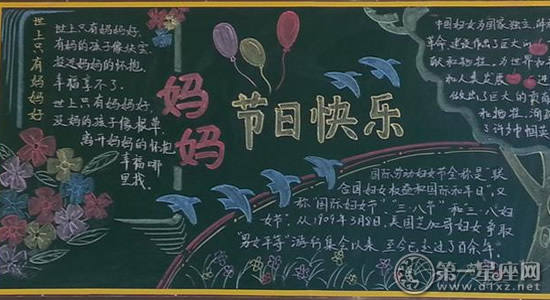 世上只有妈妈好
世上只有妈妈好,
有妈的孩子像块宝.
投进妈妈的怀抱,
幸福享不了.
世上只有妈妈好,
没妈的孩子像根草.
离开妈妈的怀抱
幸福哪
里找.
妈妈
节日快乐
中国妇女为国家独立、
革命、建设作出了巨大的
献和牺牲,为世界和
和人类发展
做出了巨大的贡献
和牺牲,
了许多
国际劳动妇女节全称是"联
合国妇女权益和国际和平日",又
称"国际妇女节""三·八节"和"三·八妇
女节",从1909年3月8日,美国芝加哥妇女争取
"男女平等"游行集会以来至今已达过百余年.
第一星座网
www.d1xz.net